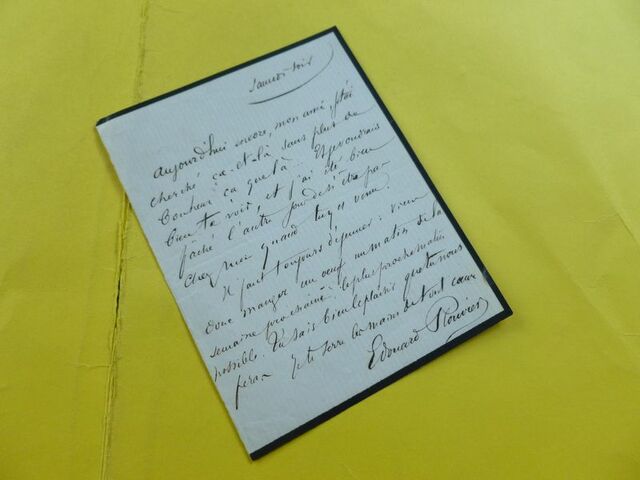 Samedi soir
Aujourd'hui encore, mon ami, j'ai
cherché ça et là sans plus de
bonheur ça que là. Et je voudrais
bien te voir, et j'ai été bien
fâché l'autre jour de n'être pas
chez moi quand tu y es venu.
Il faut toujours déjeuner : viens
donc manger un oeuf un matin de la
semaine prochaine : le plus prochain matin
possible. Tu sais bien le plaisir que tu nous
feras Je te serre la main de tout coeur
Edouard Plouvier